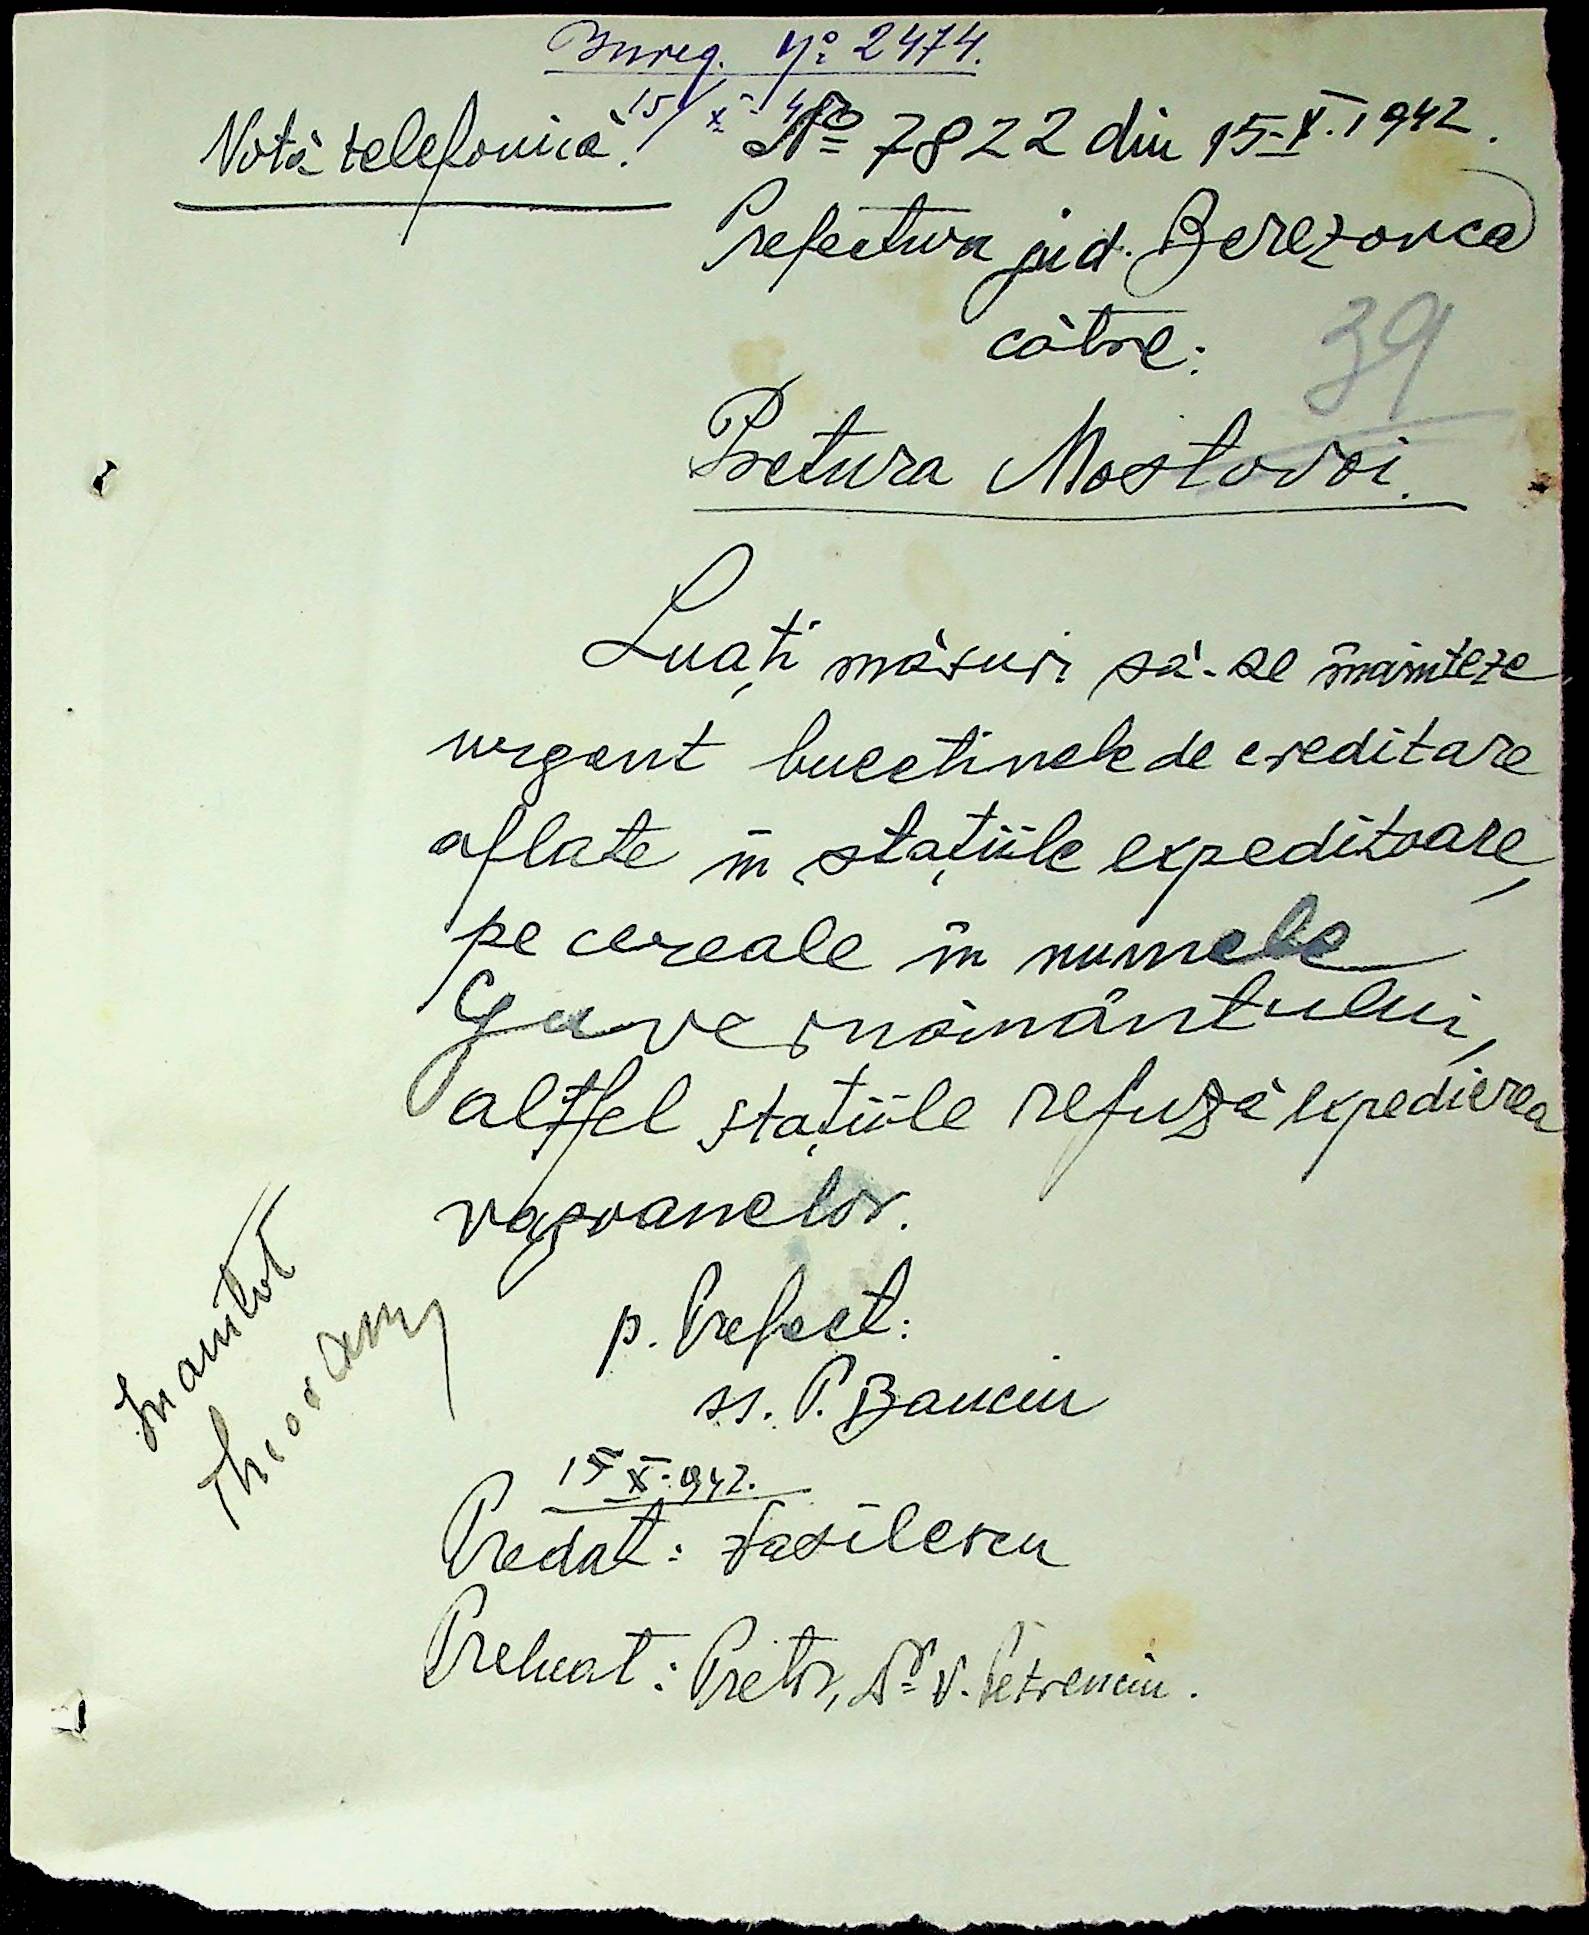 Înreg. No 2474.
15/X 942
Notă telefonică. No 7822 din 15-X-1942.
Prefectura jud. Berezovca
către:
39
Pretura Mostovoi.
Luați măsuri să-se înainteze
urgent buletinele de creditare
aflate în stațiile expeditoare,
pe cereale în numele
Guvernământului,
altfel stațiile refuză expedierea
vagoanelor.
p. Prefect:
ss. P. Banciu
15 X-942.
Predat: Vasilescu
Preluat: Pretor, Dr V. Petrenciu.
Înaintat